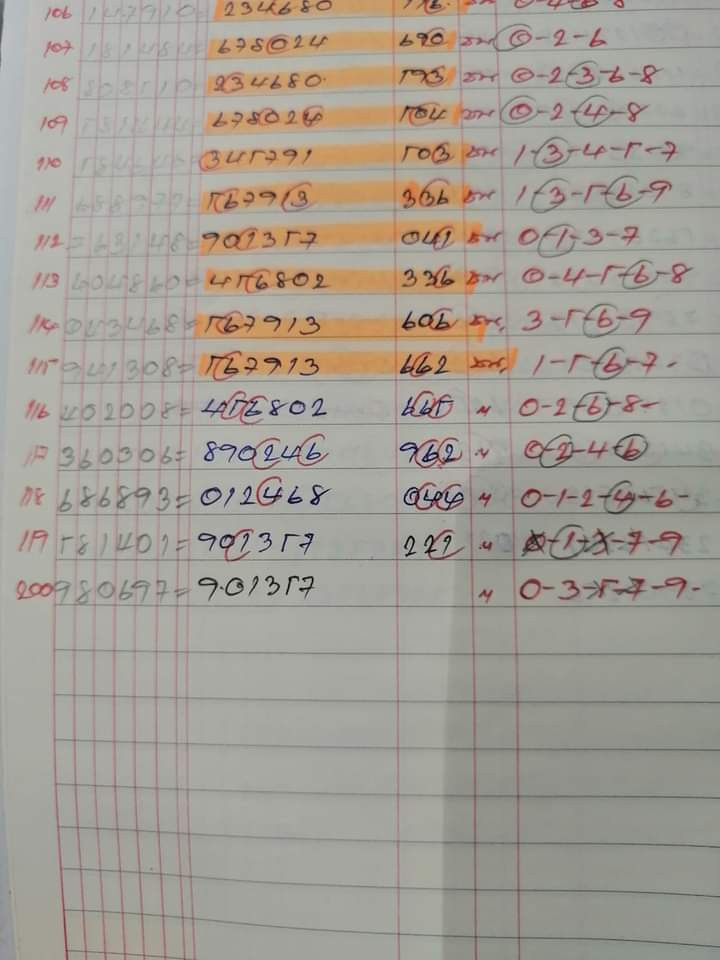 106 147910= 234680 0-4-6-8
107 181484= 678024 690 0-2-6
108 808510= 234680. 593 0-2-3-6-8
109 678024 504 0-2-4-8
110 345791 503 1-3-4-5-7
111 688977= 567913 336 1-3-5-6-9
112 =63148= 901357 041 0-1-3-7
113 604860= 456802 336 0-4-5-6-8
114 053468= 567913 606 3-5-6-9
115 941308= 567913 662 1-5-6-7-
116 402008= 456802 665 " 0-2-6-8-
117 360306= 890246 962 " 0-2-4-6
118 686893= 012468 044 " 0-1-2-4-6-
119 581401= 901357 271 " 0-1-3-7-9
200 980697= 9.01357 " 0-3-5-7-9-